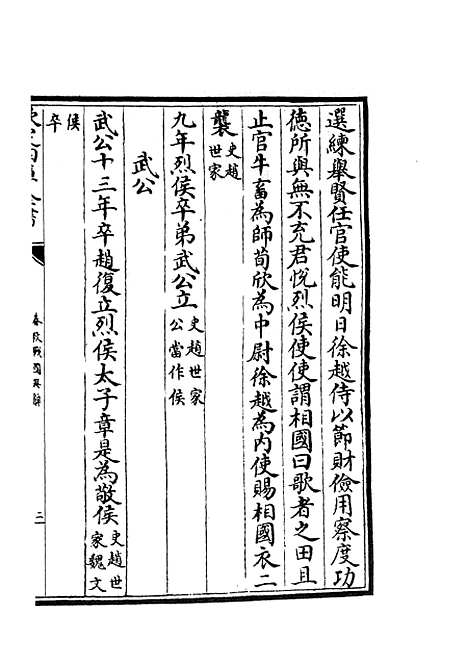 選練舉賢任官使能明日徐越侍以節財儉用察度功
徳所與無不充君悅烈侯使使謂相國曰歌者之田且
止官牛畜為師荀欣為中尉徐越為内使賜相國衣二
襲史趙世家
九年烈侯卒弟武公立史趙世家公當作侯
武公
武公十三年卒趙復立烈侯太子章是為敬侯史趙世家魏文
侯卒
欽定四庫全書
春秋戰國異辭
二